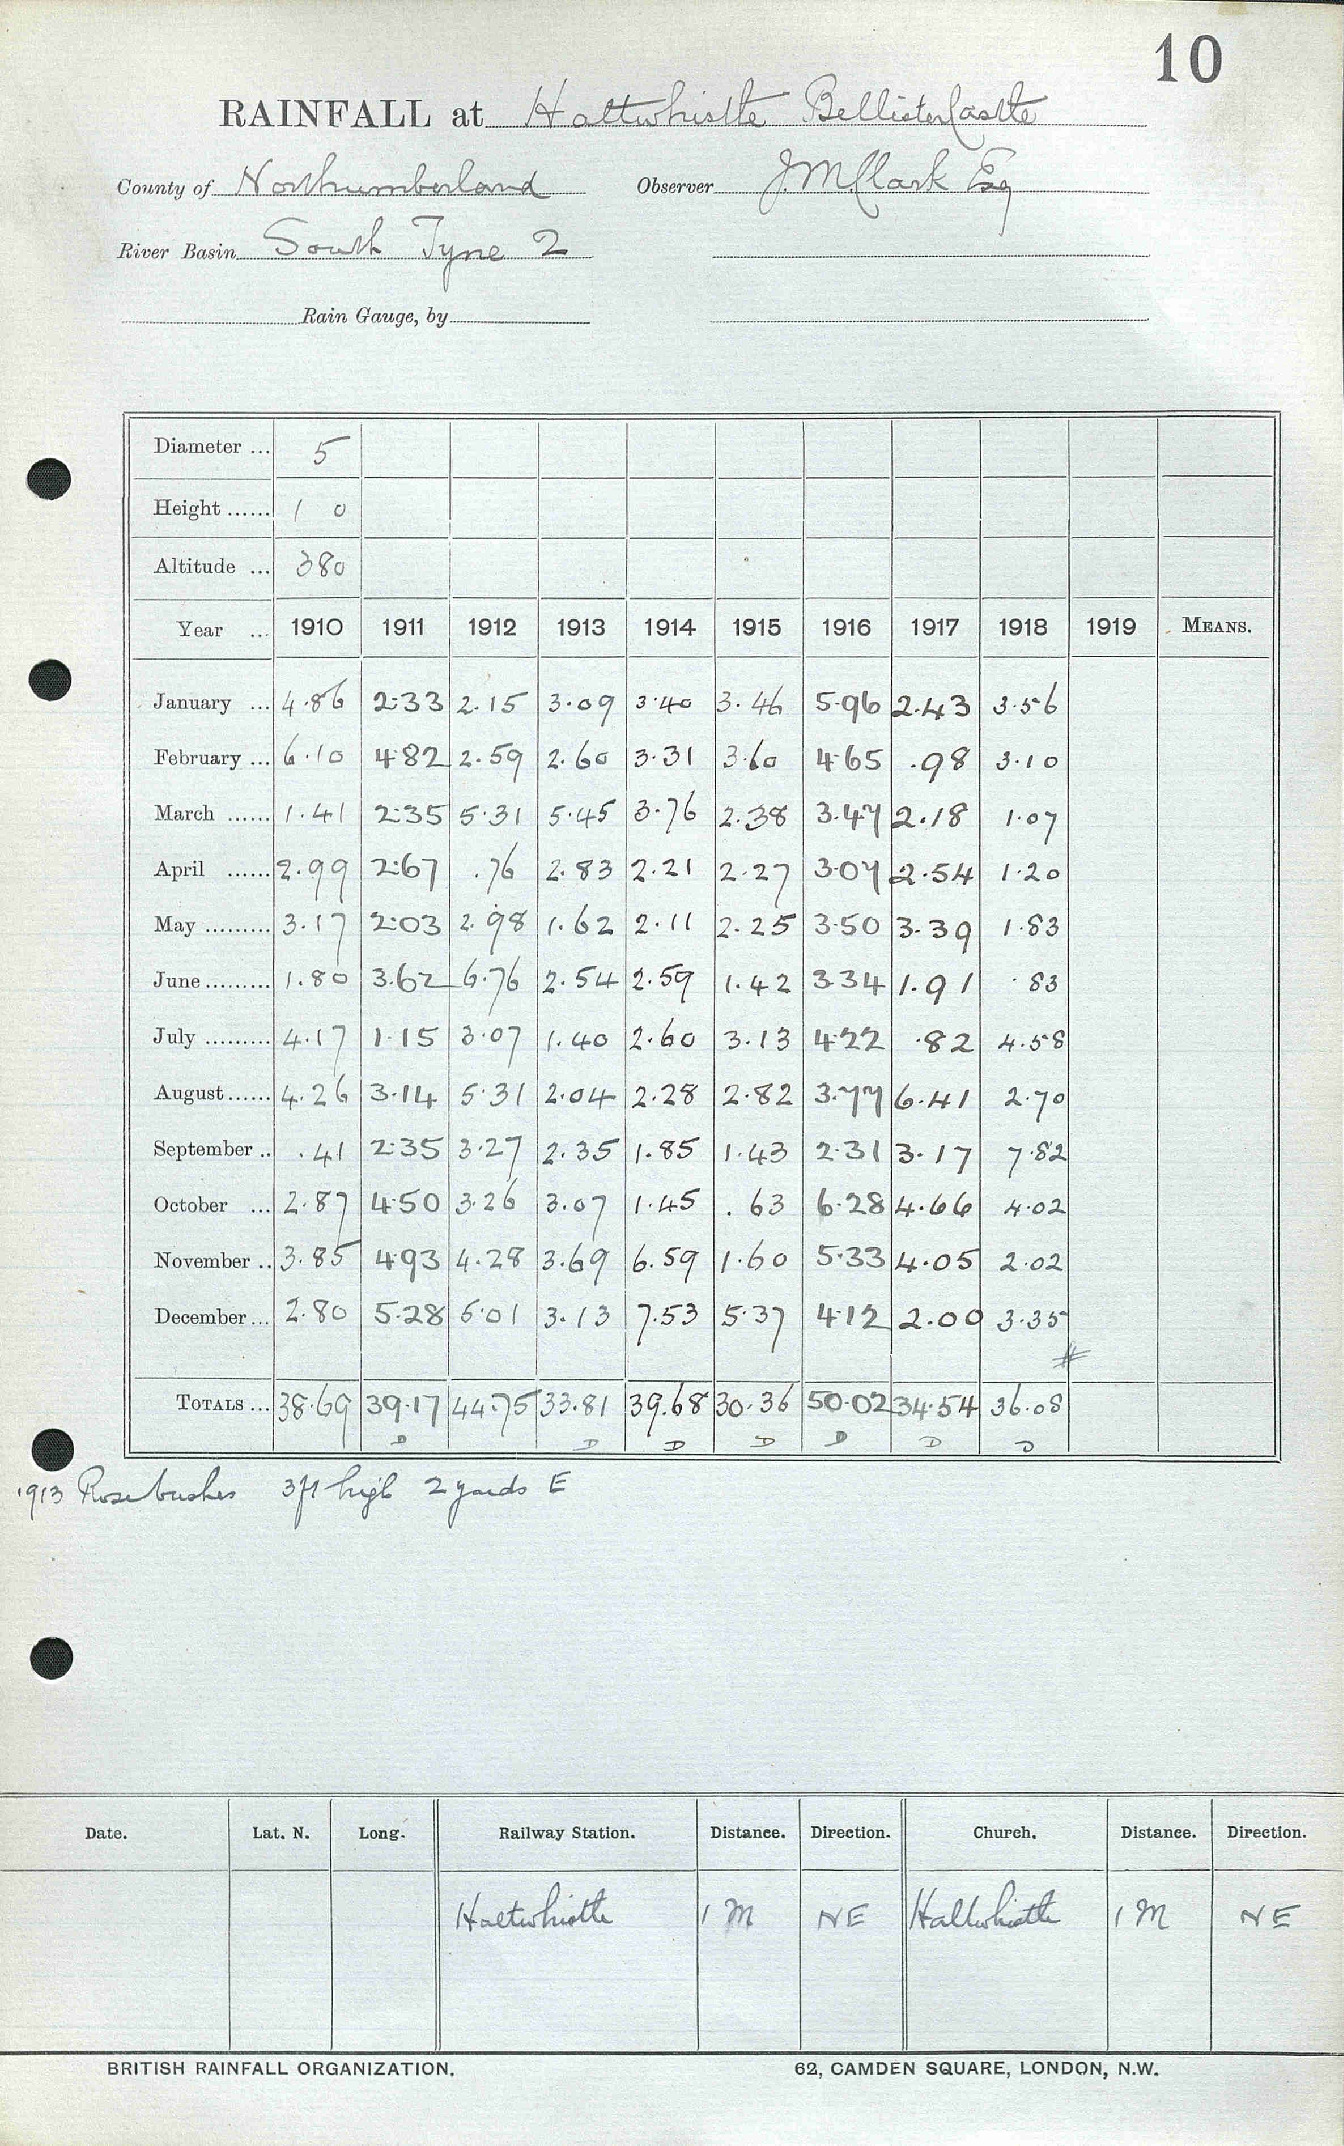 10
RAINFALL at Haltwhistle Bellister Castle
County of Northumberland Observer J. M. Clark Esq
River Basin South Tyne 2
Rain Gauge, by
Diameter ... 5
Height ...... 1 0
Altitude ... 380
Year ... 1910 1911 1912 1913 1914 1915 1916 1917 1918 1919 MEANS.
January ... 4.86 2.33 2.15 3.09 3.40 3.46 5.96 2.43 3.56
February ... 6.10 4.82 2.59 2.60 3.31 3.60 4.65 .98 3.10
March ...... 1.41 2.35 5.31 5.45 3.76 2.38 3.47 2.18 1.07
April ...... 2.99 2.67 .76 2.83 2.21 2.27 3.07 2.54 1.20
May ......... 3.17 2.03 2.98 1.62 2.11 2.25 3.50 3.39 1.83
June ......... 1.80 3.62 6.76 2.54 2.59 1.42 3.34 1.91 .83
July ......... 4.17 1.15 3.07 1.40 2.60 3.13 4.22 .82 4.58
August...... 4.26 3.14 5.31 2.04 2.28 2.82 3.77 6.41 2.70
September .. .41 2.35 3.27 2.35 1.85 1.43 2.31 3.17 7.82
October ... 2.87 4.50 3.26 3.07 1.45 .63 6.28 4.66 4.02
November .. 3.85 4.93 4.28 3.69 6.59 1.60 5.33 4.05 2.02
December ... 2.80 5.28 5.01 3.13 7.53 5.37 4.12 2.00 3.35
#
TOTALS ... 38.69 39.17 44.75 33.81 39.68 30.36 50.02 34.54 36.08
D D D D D D D
1913 Rose bushes 3ft high 2 yards E
Date. Lat. N. Long. Railway Station. Distance. Direction. Church. Distance. Direction.
Haltwhistle 1 M NE Haltwhistle 1 M NE
BRITISH RAINFALL ORGANIZATION. 62, CAMDEN SQUARE, LONDON, N.W.